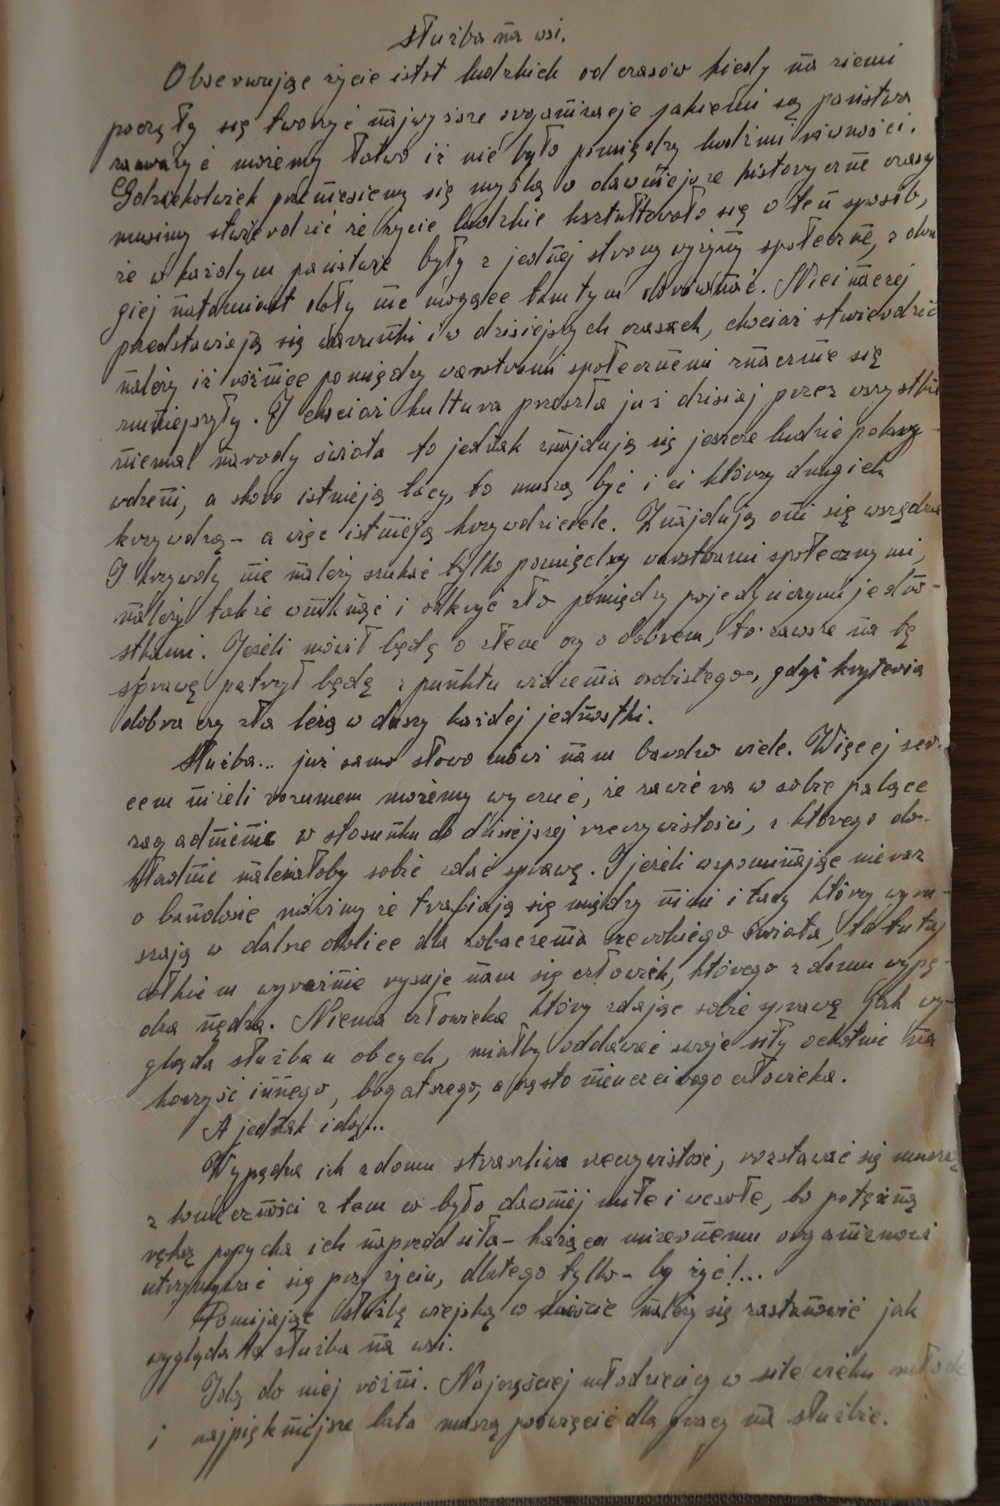 Służba na wsi.
Obserwując życie istot ludzkich od czasów kiedy na ziemi
poczęły się tworzyć najwyższe organizacje jakiemi są państwa
zauważyć możemy łatwo iż nie było pomiędzy ludźmi równości.
Gdziekolwiek przeniesiemy się myślą w dawniejsze historyczne czasy
musimy stwierdzić że życie ludzkie kształtowało się w ten sposób,
że w każdym państwie były z jednej strony wyżyny społeczne, z dru
giej natomiast doły nie mogące tamtym dorównać. Nieinaczej
przedstawiają się warunki i w dzisiejszych czasach, chociaż stwierdzić
należy iż różnice pomiędzy warstwami społecznemi znacznie się
zmniejszyły. I chociaż kultura przeszła już dzisiaj przez wszystkie
niemal narody świata to jednak znajdują się jeszcze ludzie pokrzy-
wdzeni, a skoro istnieją tacy, to muszą być i ci którzy drugich
krzywdzą - a więc istnieją krzywdziciele. Znajdują oni się wszędzie
I krzywdy nie należy szukać tylko pomiędzy warstwami społecznymi,
należy także wniknąć i odkryć zło pomiędzy pojedyńczymi jedno-
stkami. Jeżeli mówił będę o złem czy o dobrem, to zawsze na tę
sprawę patrzył będę z punktu widzenia osobistego, gdyż kryteria
dobra czy zła leżą w duszy każdej jednostki.
Służba... już samo słowo mówi nam bardzo wiele. Więcej ser-
cem niżeli rozumem możemy wyczuć, że zawiera w sobie palące
zagadnienie w stosunku do dzisiejszej rzeczywistości, z którego do-
kładnie należałoby sobie zdać sprawę. I jeżeli wspominając nieraz
o bandosie mówimy że trafiają się między nimi i tacy którzy wyru-
szają w dalsze okolice dla zobaczenia szerokiego świata, to tutaj
całkiem wyraźnie rysuje nam się człowiek, którego z domu wypę-
dza nędza. Niema człowieka który zdając sobie sprawę jak wy-
gląda służba u obcych, miałby oddawać swoje siły ochotnie na
korzyść innego, bogatszego, a często nieuczciwego człowieka.
A jednak idą...
Wypędza ich z domu straszliwa rzeczywistość, rozstawać się muszą
z konieczności z tem co było dawniej miłe i wesołe, bo potężną
ręką popycha ich naprzód siła - każąca mizernemu organizmowi
utrzymywać się przy życiu, dlatego tylko - by żyć!...
Pomijając służbę wiejską w mieście należy się zastanowić jak
wygląda ta służba na wsi.
Idą do niej różni. Najczęściej młodzieńcy w sile wieku młode
i najpiękniejsze lata muszą poświęcić dla pracy na służbie.